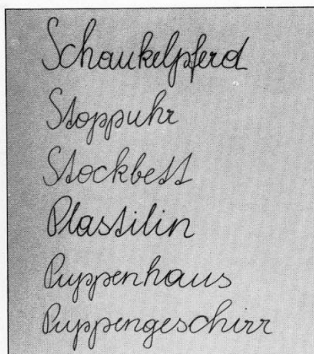 Schaukelpferd
Stoppuhr
Stockbett
Plastilin
Puppenhaus
Puppengeschirr